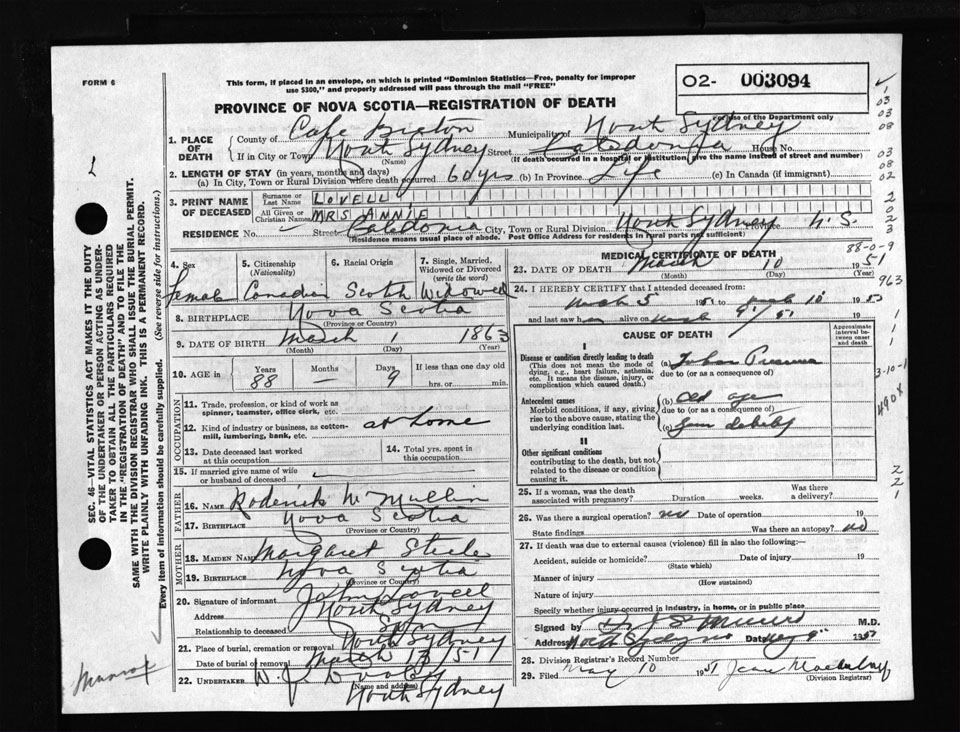 FORM 6
This form, if placed in an envelope, on which is printed "Dominion Statistics—Free, penalty for improper
use $300," and properly addressed will pass through the mail "FREE"
O2- 003094
For use of the Department only
PROVINCE OF NOVA SCOTIA—REGISTRATION OF DEATH
1. PLACE OF DEATH
County of Cape Breton Municipality of North Sydney
If in City or Town North Sydney Street Caledonia House No.
(Name) (If death occurred in a hospital or institution, give the name instead of street and number)
2. LENGTH OF STAY (in years, months and days)
(a) In City, Town or Rural Division where death occurred 60 yrs (b) In Province Life (c) In Canada (if immigrant)
3. PRINT NAME OF DECEASED
Surname or Last Name LOVELL
All Given or Christian Names MRS ANNIE
RESIDENCE No. Street Caledonia City, Town or Rural Division North Sydney Province N.S.
(Residence means usual place of abode. Post Office Address for residents in rural parts not sufficient)
4. Sex 5. Citizenship (Nationality) 6. Racial Origin 7. Single, Married, Widowed or Divorced (write the word)
Female Canadian Scotch Widowed
8. BIRTHPLACE Nova Scotia
(Province or Country)
9. DATE OF BIRTH March 1 1863
(Month) (Day) (Year)
10. AGE in Years 88 Months — Days 9 If less than one day old
hrs. or min.
OCCUPATION
11. Trade, profession, or kind of work as spinner, teamster, office clerk, etc.
12. Kind of industry or business, as cotton-mill, lumbering, bank, etc. at home
13. Date deceased last worked at this occupation
14. Total yrs. spent in this occupation
15. If married give name of wife or husband of deceased
FATHER
16. NAME Roderick McMullin
17. BIRTHPLACE Nova Scotia
(Province or Country)
MOTHER
18. MAIDEN NAME Margaret Steele
19. BIRTHPLACE Nova Scotia
(Province or Country)
20. Signature of informant John Lovell
Address North Sydney
Relationship to deceased Son
21. Place of burial, cremation or removal North Sydney
Date of burial or removal March 13/51
22. UNDERTAKER W. J.
(Name and address)
North Sydney
MEDICAL CERTIFICATE OF DEATH
88-0-9
23. DATE OF DEATH March 10 1951
(Month) (Day) (Year)
24. I HEREBY CERTIFY that I attended deceased from:
March 5 1951 to March 10 195
and last saw h alive on March 9/51
CAUSE OF DEATH
Approximate interval between onset and death
I
Disease or condition directly leading to death
(This does not mean the mode of dying, e.g., heart failure, asthenia, etc. It means the disease, injury, or complication which caused death.)
(a)
due to (or as a consequence of)
Antecedent causes
Morbid conditions, if any, giving rise to the above cause, stating the underlying condition last.
(b) Old age
due to (or as a consequence of)
(c) debility
II
Other significant conditions
contributing to the death, but not related to the disease or condition causing it.
25. If a woman, was the death associated with pregnancy? Duration weeks. Was there a delivery?
26. Was there a surgical operation? no Date of operation 19
State findings Was there an autopsy? no
27. If death was due to external causes (violence) fill in also the following:
Accident, suicide or homicide? Date of injury 19
(State which)
Manner of injury
(How sustained)
Nature of injury
Specify whether injury occurred in industry, in home, or in public place
Signed by Dr. M.D.
Address North Sydney Date 195
28. Division Registrar's Record Number
29. Filed May 10 1951 Jean
(Division Registrar)
SEC. 46—VITAL STATISTICS ACT MAKES IT THE DUTY
OF THE UNDERTAKER OR PERSON ACTING AS UNDER-
TAKER TO OBTAIN ALL THE PARTICULARS REQUIRED
IN THE "REGISTRATION OF DEATH" AND TO FILE THE
SAME WITH THE DIVISION REGISTRAR WHO SHALL ISSUE THE BURIAL PERMIT.
WRITE PLAINLY WITH UNFADING INK. THIS IS A PERMANENT RECORD.
Every item of information should be carefully supplied. (See reverse side for instructions.)
1
03
03
08
03
08
02
2
0
2
3
963
1
1
1
3-10-1
490X
2
2
1